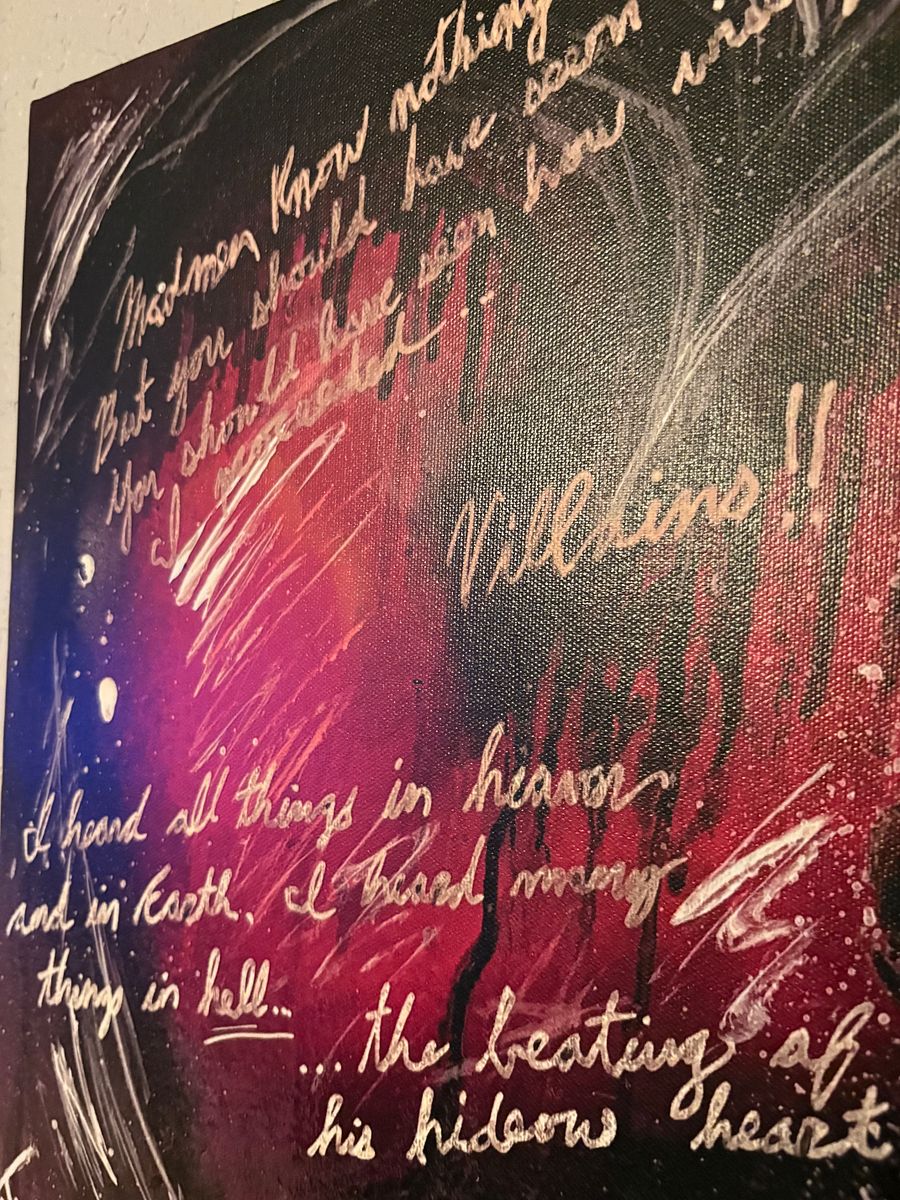 Madmen Know nothing
But you should have seen
you should have seen how wisely
I proceeded...
Villains!!
I heard all things in heaven
and in Earth. I heard many
things in hell...
...the beating of
his hideous heart